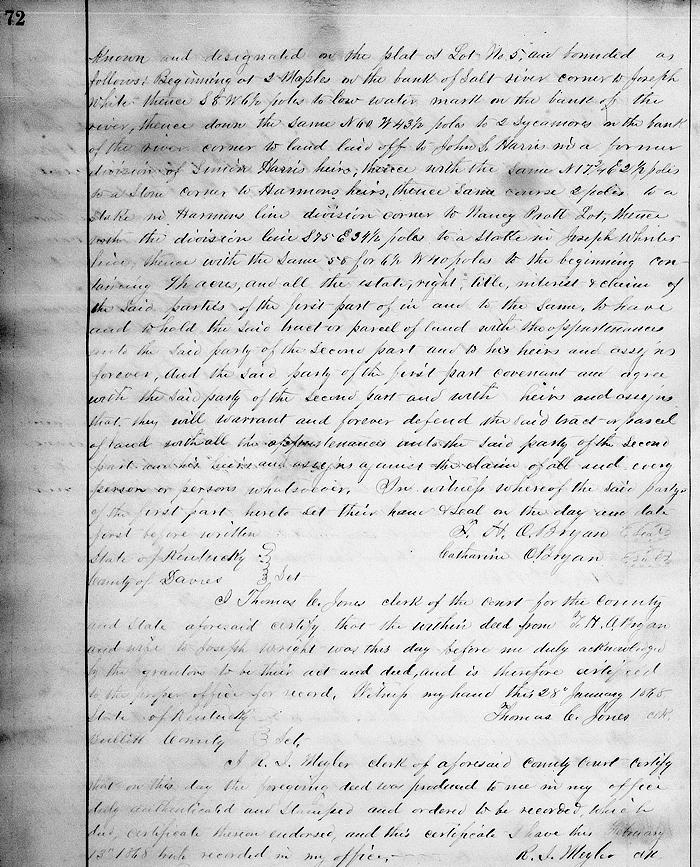 72
Known and designated on the plat as Lot No 5, and bounded as
follows: Beginning at 2 Maples on the bank of Salt river corner to Joseph
White thence S 8 W 6½ poles to low water mark on the bank of the
river, thence down the same N 60 W 43½ poles to 2 Sycamores on the bank
of the river corner to land laid off to John S. Harris in a former
division of Harris heirs, thence with the same N 17¾ E 2½ poles
to a Stone corner to Harmons heirs, thence same course 2 poles to a
Stake in Harmons line division corner to Nancy Pratt Lot, thence
with the division line S 75 E 34½ poles to a Stake in Joseph
line, thence with the same W 40 poles to the beginning con-
taining acres, and all the estate, right, title, interest & claim of
the said parties of the first part of in and to the same, to have
and to hold the said tract or parcel of land with the appurtenances
unto the said party of the second part and to his heirs and assigns
forever, And the said party of the first part covenant and agree
with the said party of the second part and with heirs and assigns
that they will warrant and forever defend the said tract or parcel
of land with all the appurtenances unto the said party of the second
part and his heirs and assigns against the claim of all and every
person or persons whatsoever. In witness whereof the said partys
of the first part hereto set their hand & seal on the day and date
first before written
F. H. O. Bryan Seal
State of Kentucky Catharine O. Bryan Seal
County of Davies Sct
I Thomas C. Jones clerk of the court for the County
and State aforesaid certify that the within deed from F. H. O. Bryan
and wife to Joseph Wright was this day before me duly acknowledged
by the grantors to be their act and deed, and is therefore certified
to the proper office for record. Witness my hand this 28th January 1868
State of Kentucky Thomas C. Jones clk
Bullitt County Sct,
I R. J. Meyler clerk of aforesaid county court certify
that on this day the foregoing deed was produced to me in my office
duly authenticated and Stamped and ordered to be recorded, which
deed, certificate thereon endorsed, and this certificate I have this February
13th 1868 duly recorded in my office,
R. J. Meyler clk